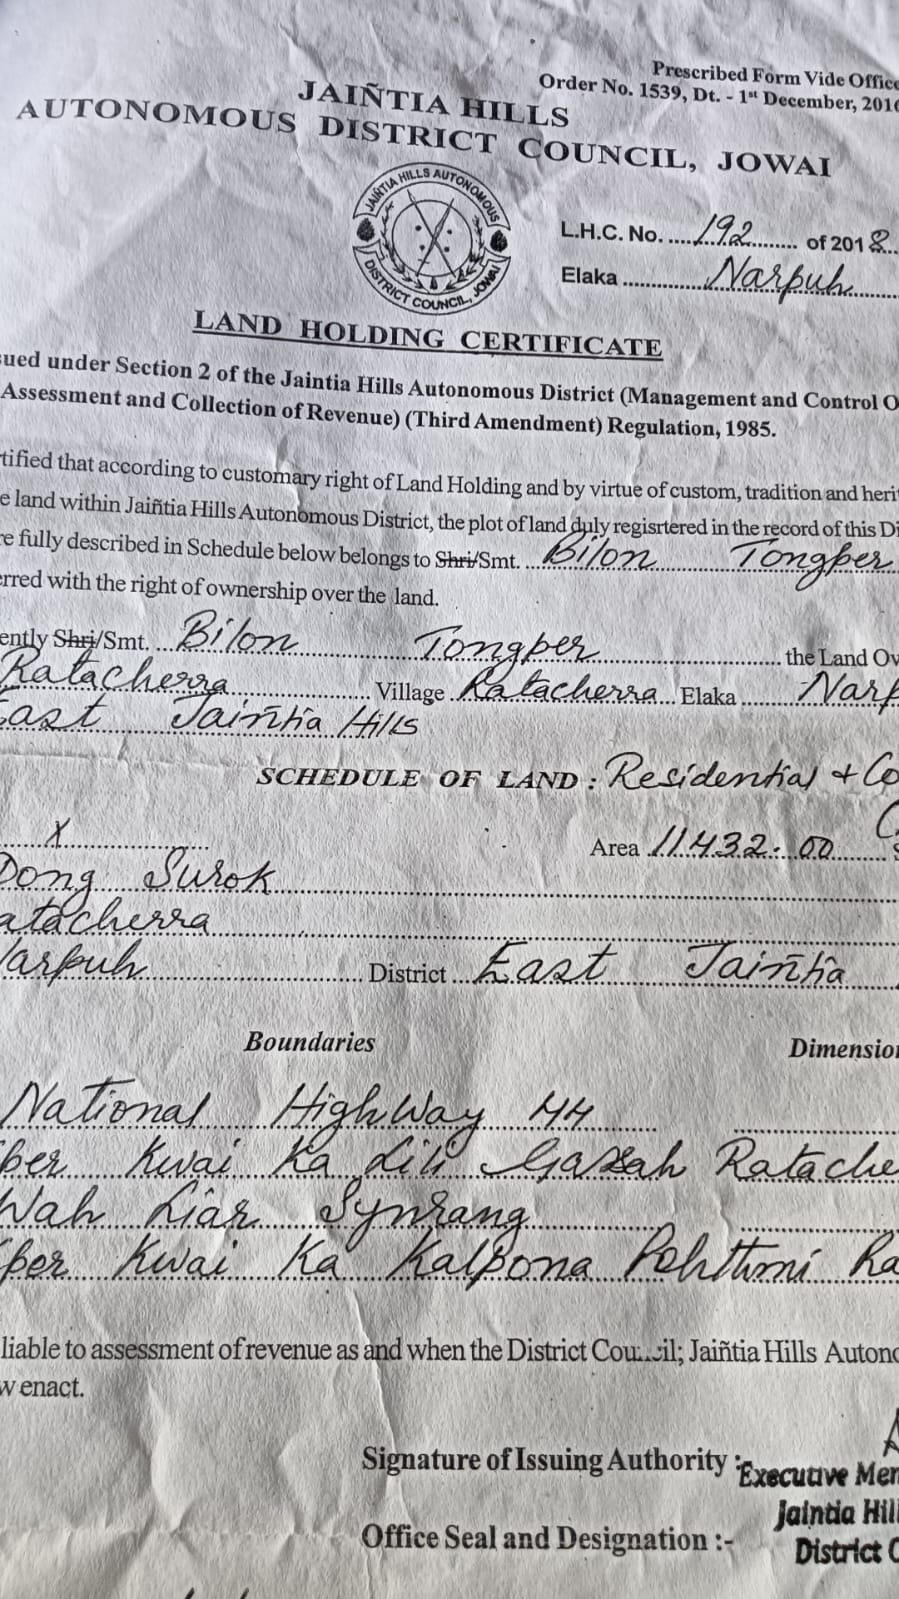 Prescribed Form Vide Office
Order No. 1539, Dt. - 1st December, 2016
JAIÑTIA HILLS
AUTONOMOUS DISTRICT COUNCIL, JOWAI
JAIÑTIA HILLS AUTONOMOUS
DISTRICT COUNCIL, JOWAI
L.H.C. No. 192 of 2018
Elaka Narpuh
LAND HOLDING CERTIFICATE
sued under Section 2 of the Jaintia Hills Autonomous District (Management and Control O
Assessment and Collection of Revenue) (Third Amendment) Regulation, 1985.
tified that according to customary right of Land Holding and by virtue of custom, tradition and herit
e land within Jaiñtia Hills Autonomous District, the plot of land duly regisrtered in the record of this Di
re fully described in Schedule below belongs to Shri/Smt. Bilon Tongper
erred with the right of ownership over the land.
ently Shri/Smt. Bilon Tongper the Land Ow
Ratacherra Village Ratacherra Elaka Narp
East Jaiñtia Hills
SCHEDULE OF LAND : Residential + Co
X Area 11432.00
Dong Surok
atacherra
Narpuh District East Jaiñtia
Boundaries Dimension
National Highway 44
per Kwai Ka Lili Gassah Ratache
Wah Liar Synrang
per Kwai Ka Kalpona Pohthmi Ra
liable to assessment of revenue as and when the District Council; Jaiñtia Hills Autono
w enact.
Signature of Issuing Authority :
Executive Mem
Jaintia Hill
Office Seal and Designation :-
District C